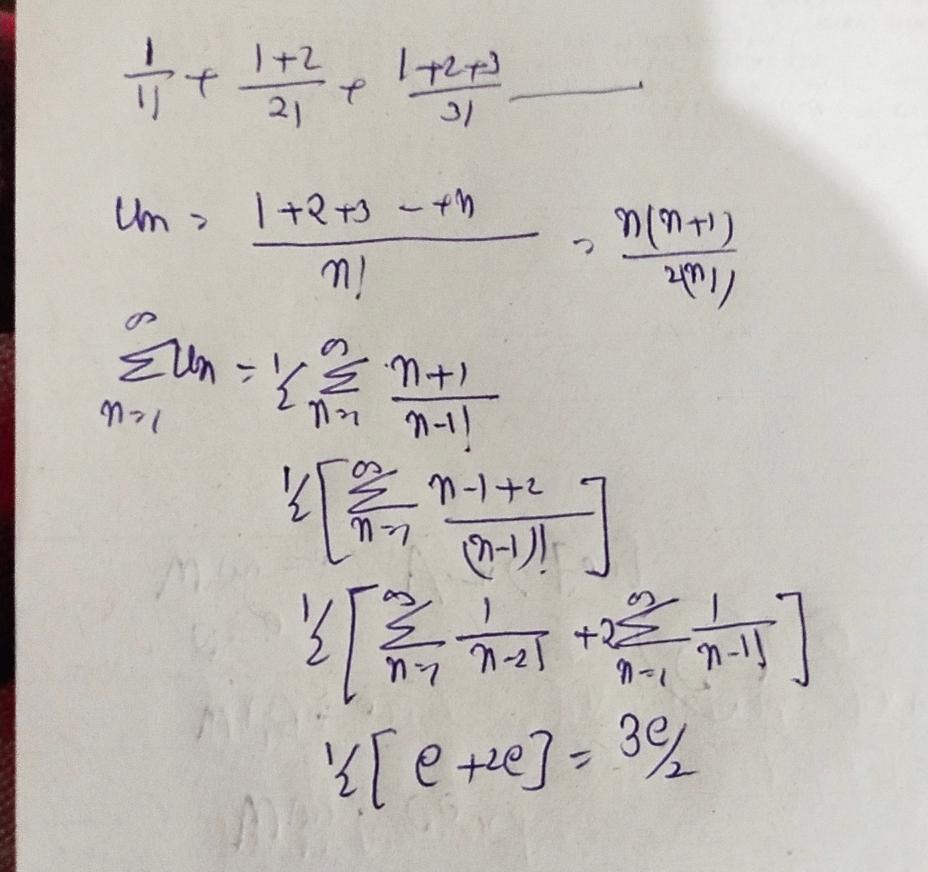 1/1! + 1+2/2! + 1+2+3/3! ———
Un = 1+2+3 - +n / n! = n(n+1) / 2(n!)
∞∑n=1 Un = 1/2 ∞∑n=1 n+1 / n-1!
1/2 [ ∞∑n=1 n-1+2 / (n-1)! ]
1/2 [ ∞∑n=1 1 / n-2! + 2 ∞∑n=1 1 / n-1! ]
1/2 [ e + 2e ] = 3e/2